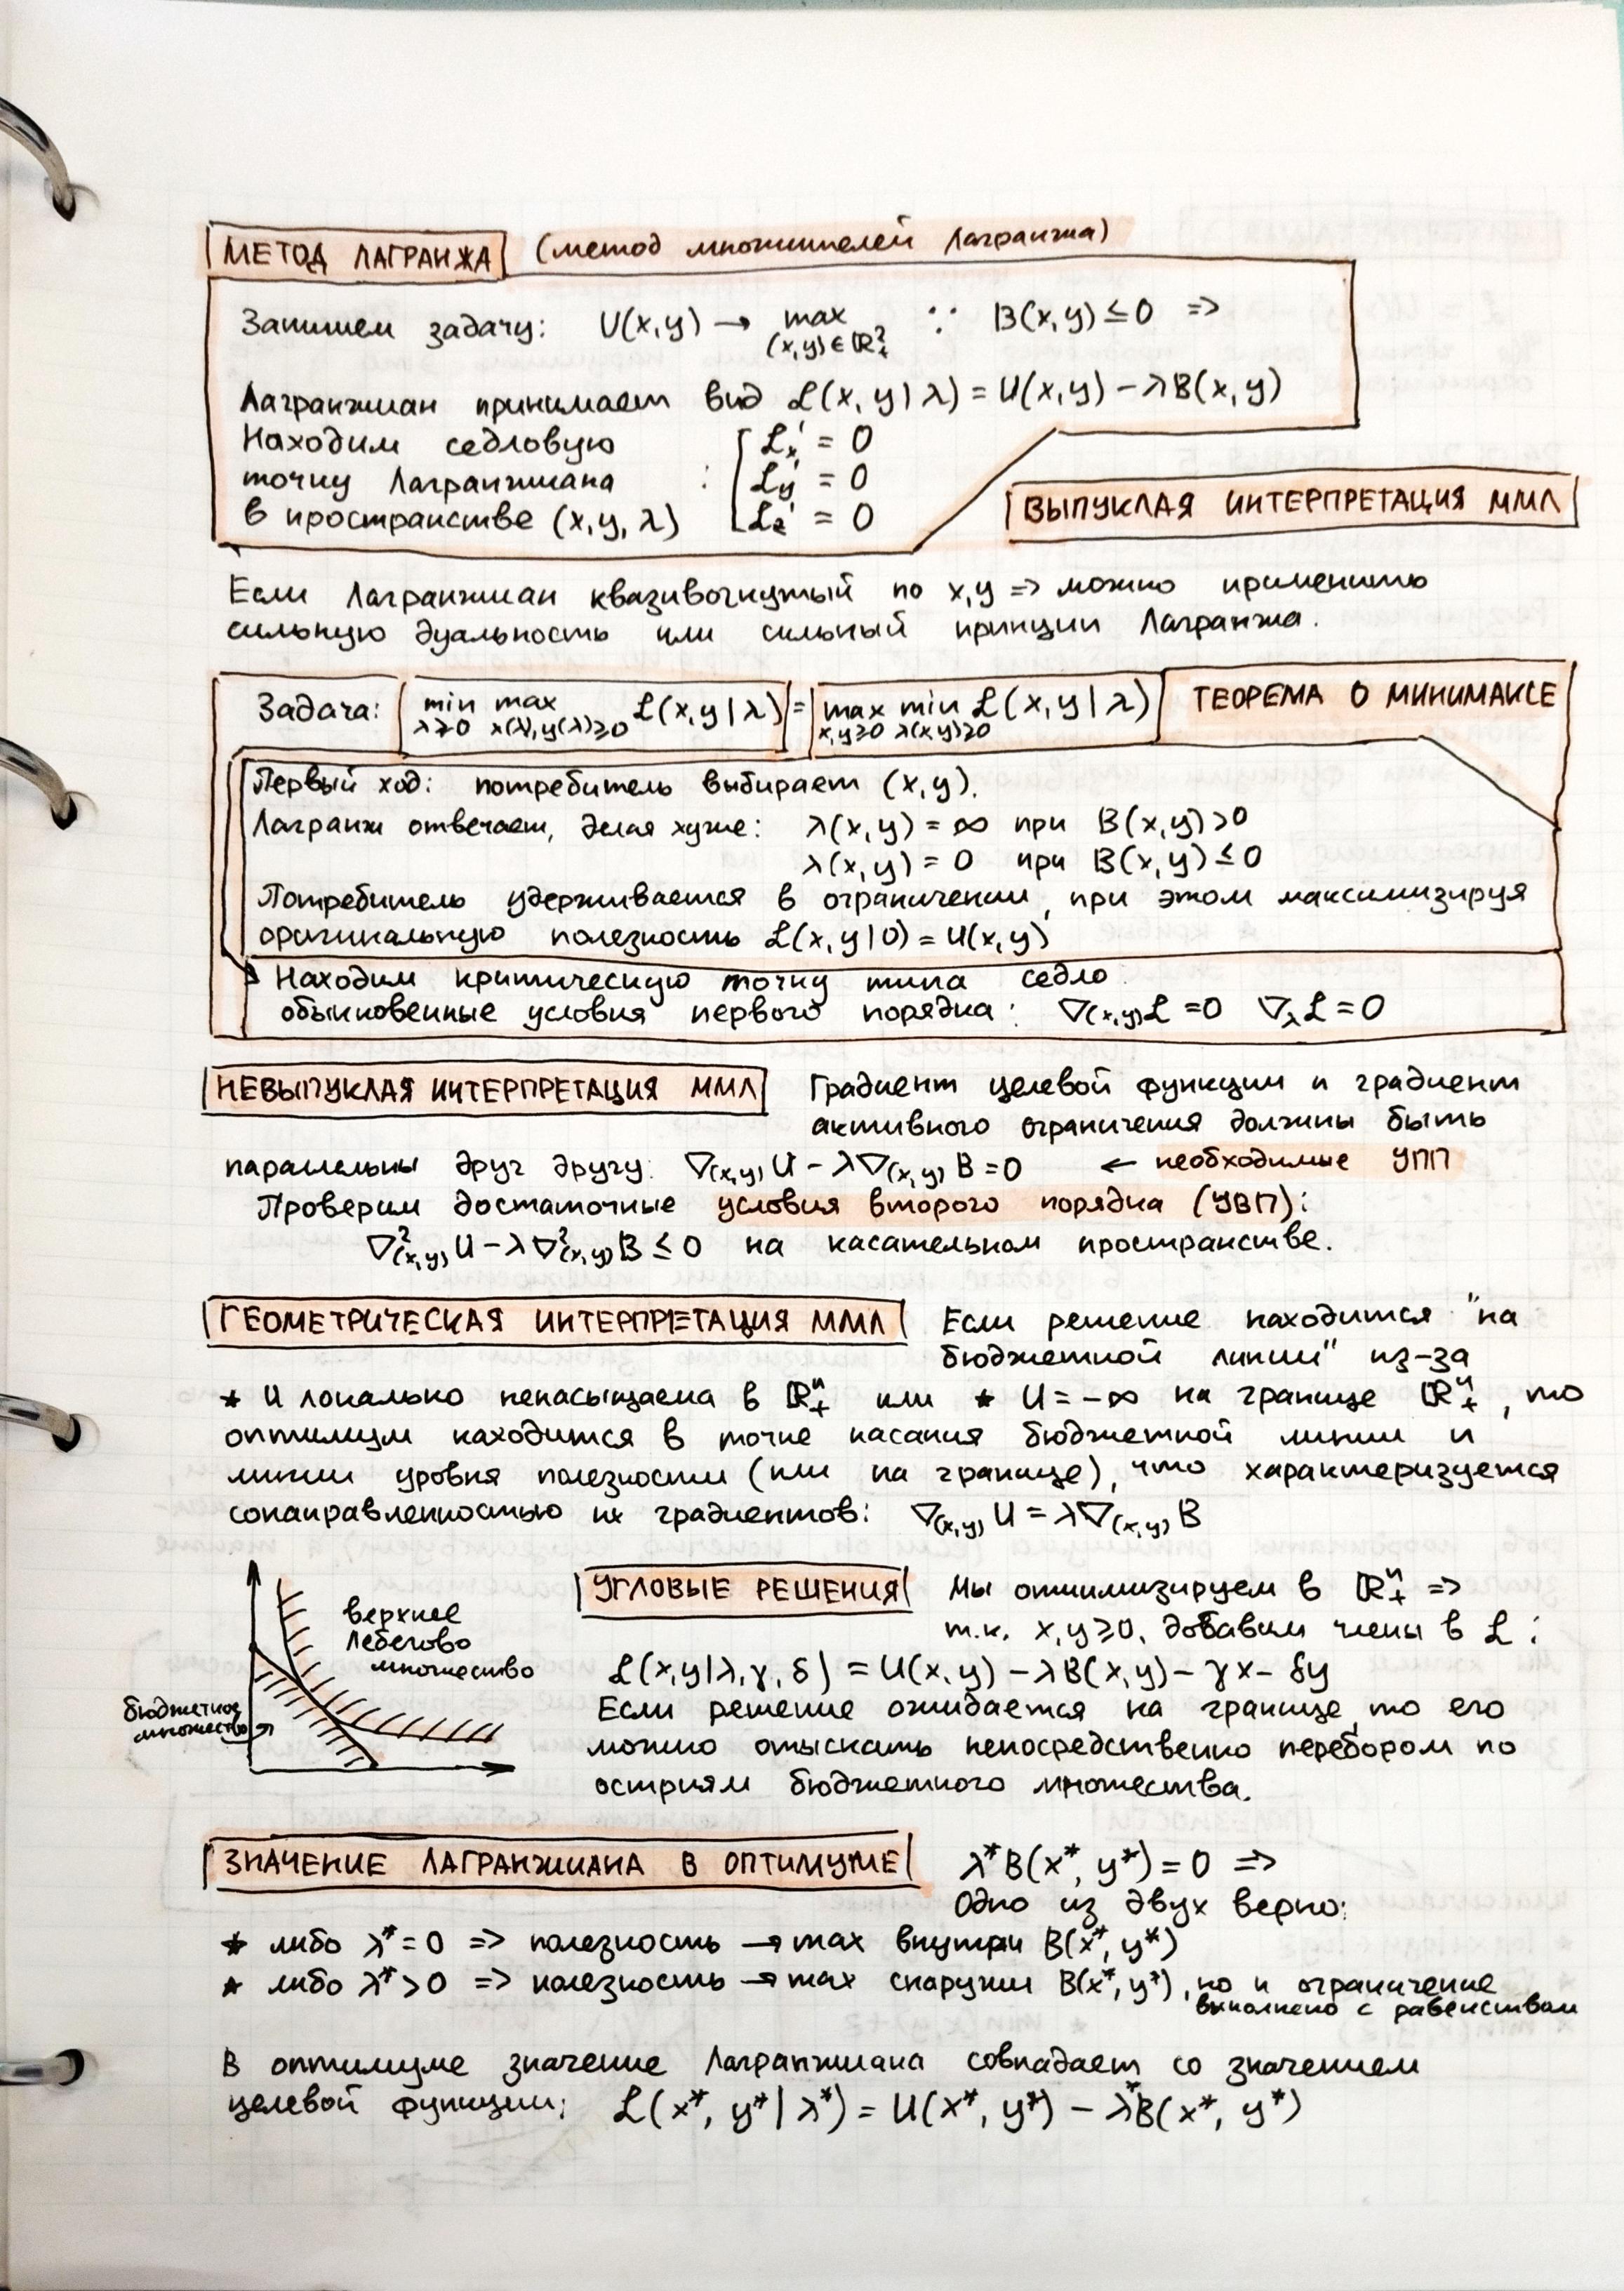 МЕТОД ЛАГРАНЖА (метод множителей Лагранжа)
Запишем задачу: U(x,y) → max (x,y)∈ℝ²₊ ∵ B(x,y) ≤ 0 =>
Лагранжиан принимает вид ℒ(x,y|λ) = U(x,y) − λB(x,y)
Находим седловую
точку Лагранжиана :
в пространстве (x,y,λ)
[ℒₓ' = 0
ℒ_y' = 0
ℒ_z' = 0
ВЫПУКЛАЯ ИНТЕРПРЕТАЦИЯ ММЛ
Если Лагранжиан квазивогнутый по x,y => можно применить
сильную дуальность или сильный принцип Лагранжа.
Задача: min λ≥0 max x(λ),y(λ)≥0 ℒ(x,y|λ) = max x,y≥0 min λ(x,y)≥0 ℒ(x,y|λ) ТЕОРЕМА О МИНИМАКСЕ
Первый ход: потребитель выбирает (x,y).
Лагранж отвечает, делая хуже: λ(x,y) = ∞ при B(x,y)>0
λ(x,y) = 0 при B(x,y) ≤ 0
Потребитель удерживается в ограничении, при этом максимизируя
оригинальную полезность ℒ(x,y|0) = U(x,y)
Находим критическую точку типа седло
обыкновенные условия первого порядка: ∇(x,y)ℒ = 0 ∇_λℒ = 0
НЕВЫПУКЛАЯ ИНТЕРПРЕТАЦИЯ ММЛ Градиент целевой функции и градиент
активного ограничения должны быть
параллельны друг другу: ∇(x,y) U − λ∇(x,y) B = 0 ← необходимые УПП
Проверим достаточные условия второго порядка (УВП):
∇²(x,y) U − λ∇²(x,y) B ≤ 0 на касательном пространстве.
ГЕОМЕТРИЧЕСКАЯ ИНТЕРПРЕТАЦИЯ ММЛ Если решение находится "на
бюджетной линии" из-за
* U локально ненасыщаема в ℝⁿ₊ или * U = −∞ на границе ℝⁿ₊, то
оптимум находится в точке касания бюджетной линии и
линии уровня полезности (или на границе), что характеризуется
сонаправленностью их градиентов: ∇(x,y) U = λ∇(x,y) B
верхнее
Лебегово
множество
бюджетное
множество
УГЛОВЫЕ РЕШЕНИЯ Мы оптимизируем в ℝⁿ₊ =>
т.к. x,y≥0, добавим члены в ℒ:
ℒ(x,y|λ,γ,δ) = U(x,y) − λB(x,y) − γx − δy
Если решение ожидается на границе то его
можно отыскать непосредственно перебором по
остриям бюджетного множества.
ЗНАЧЕНИЕ ЛАГРАНЖИАНА В ОПТИМУМЕ λ*B(x*, y*) = 0 =>
Одно из двух верно:
* либо λ* = 0 => полезность → max внутри B(x*, y*)
* либо λ* > 0 => полезность → max снаружи B(x*, y*), но и ограничение
выполнено с равенством
В оптимуме значение Лагранжиана совпадает со значением
целевой функции: ℒ(x*, y*|λ*) = U(x*, y*) − λ*B(x*, y*)